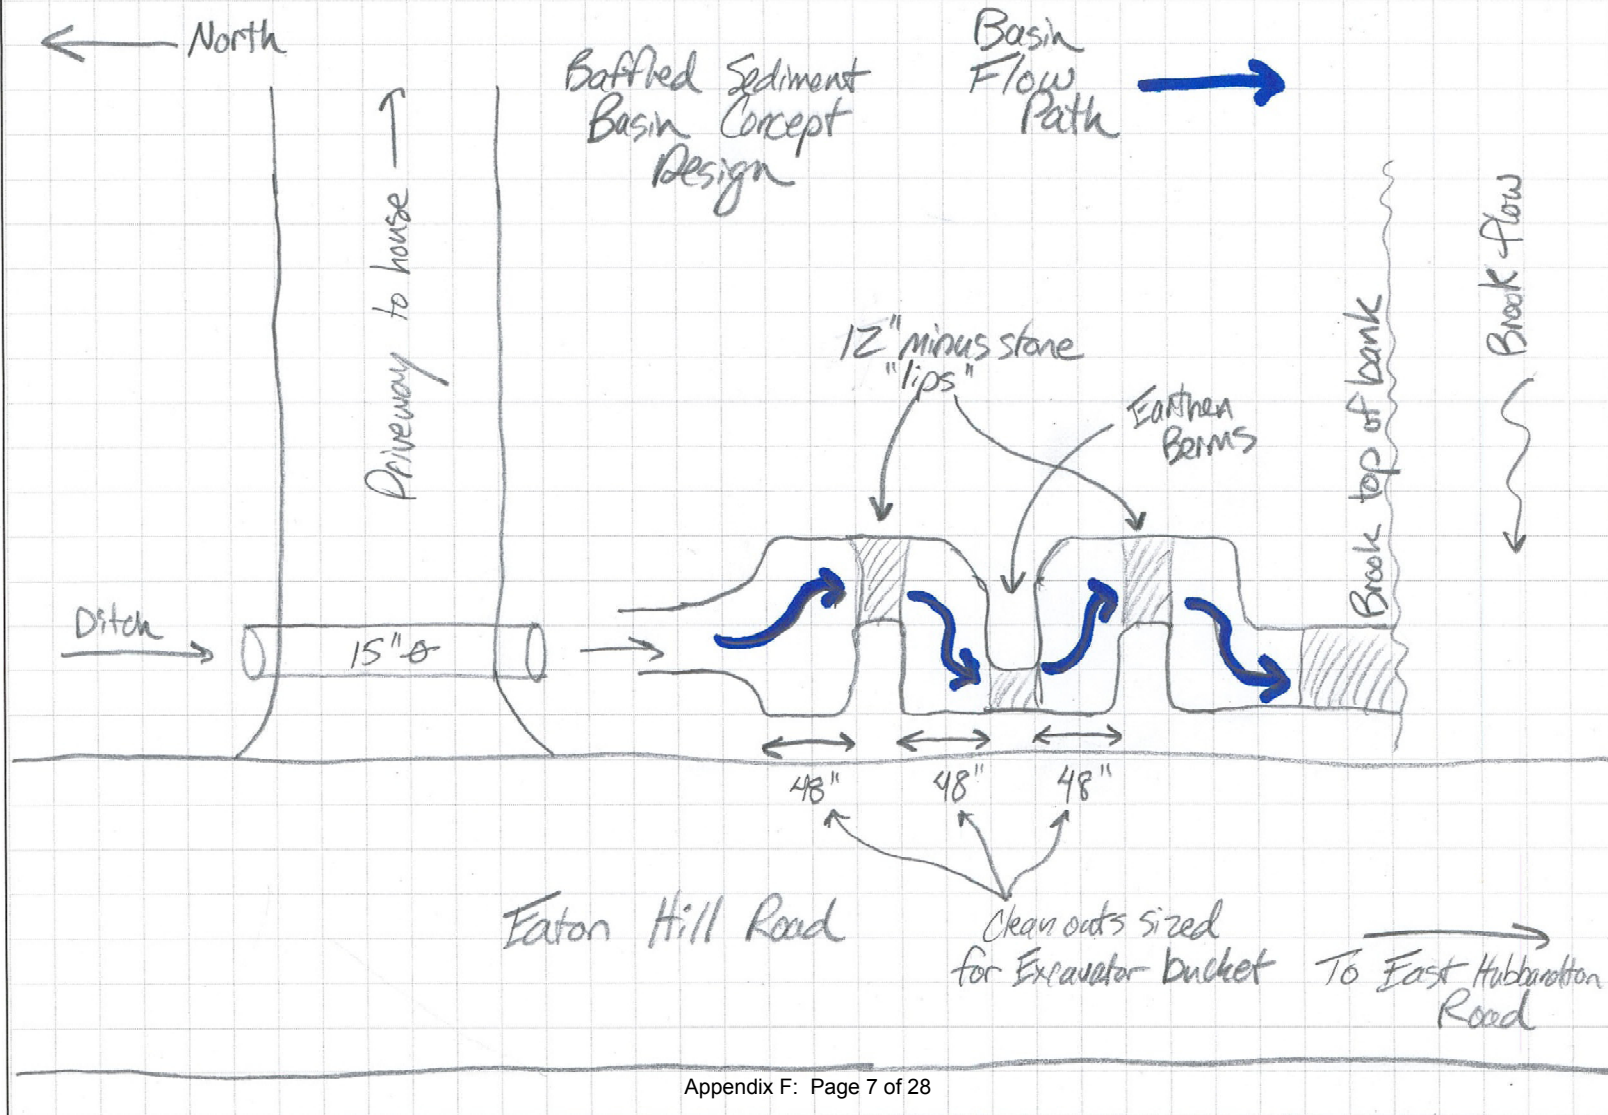 North
Baffled Sediment
Basin Concept
Design
Basin
Flow
Path
Driveway to house
Brook flow
12" minus stone
"lips"
Earthen
Berms
Brook top of bank
Ditch
15" ⌀
48"
48"
48"
Eaton Hill Road
Clean outs sized
for Excavator bucket
To East Hubbardton
Road
Appendix F: Page 7 of 28